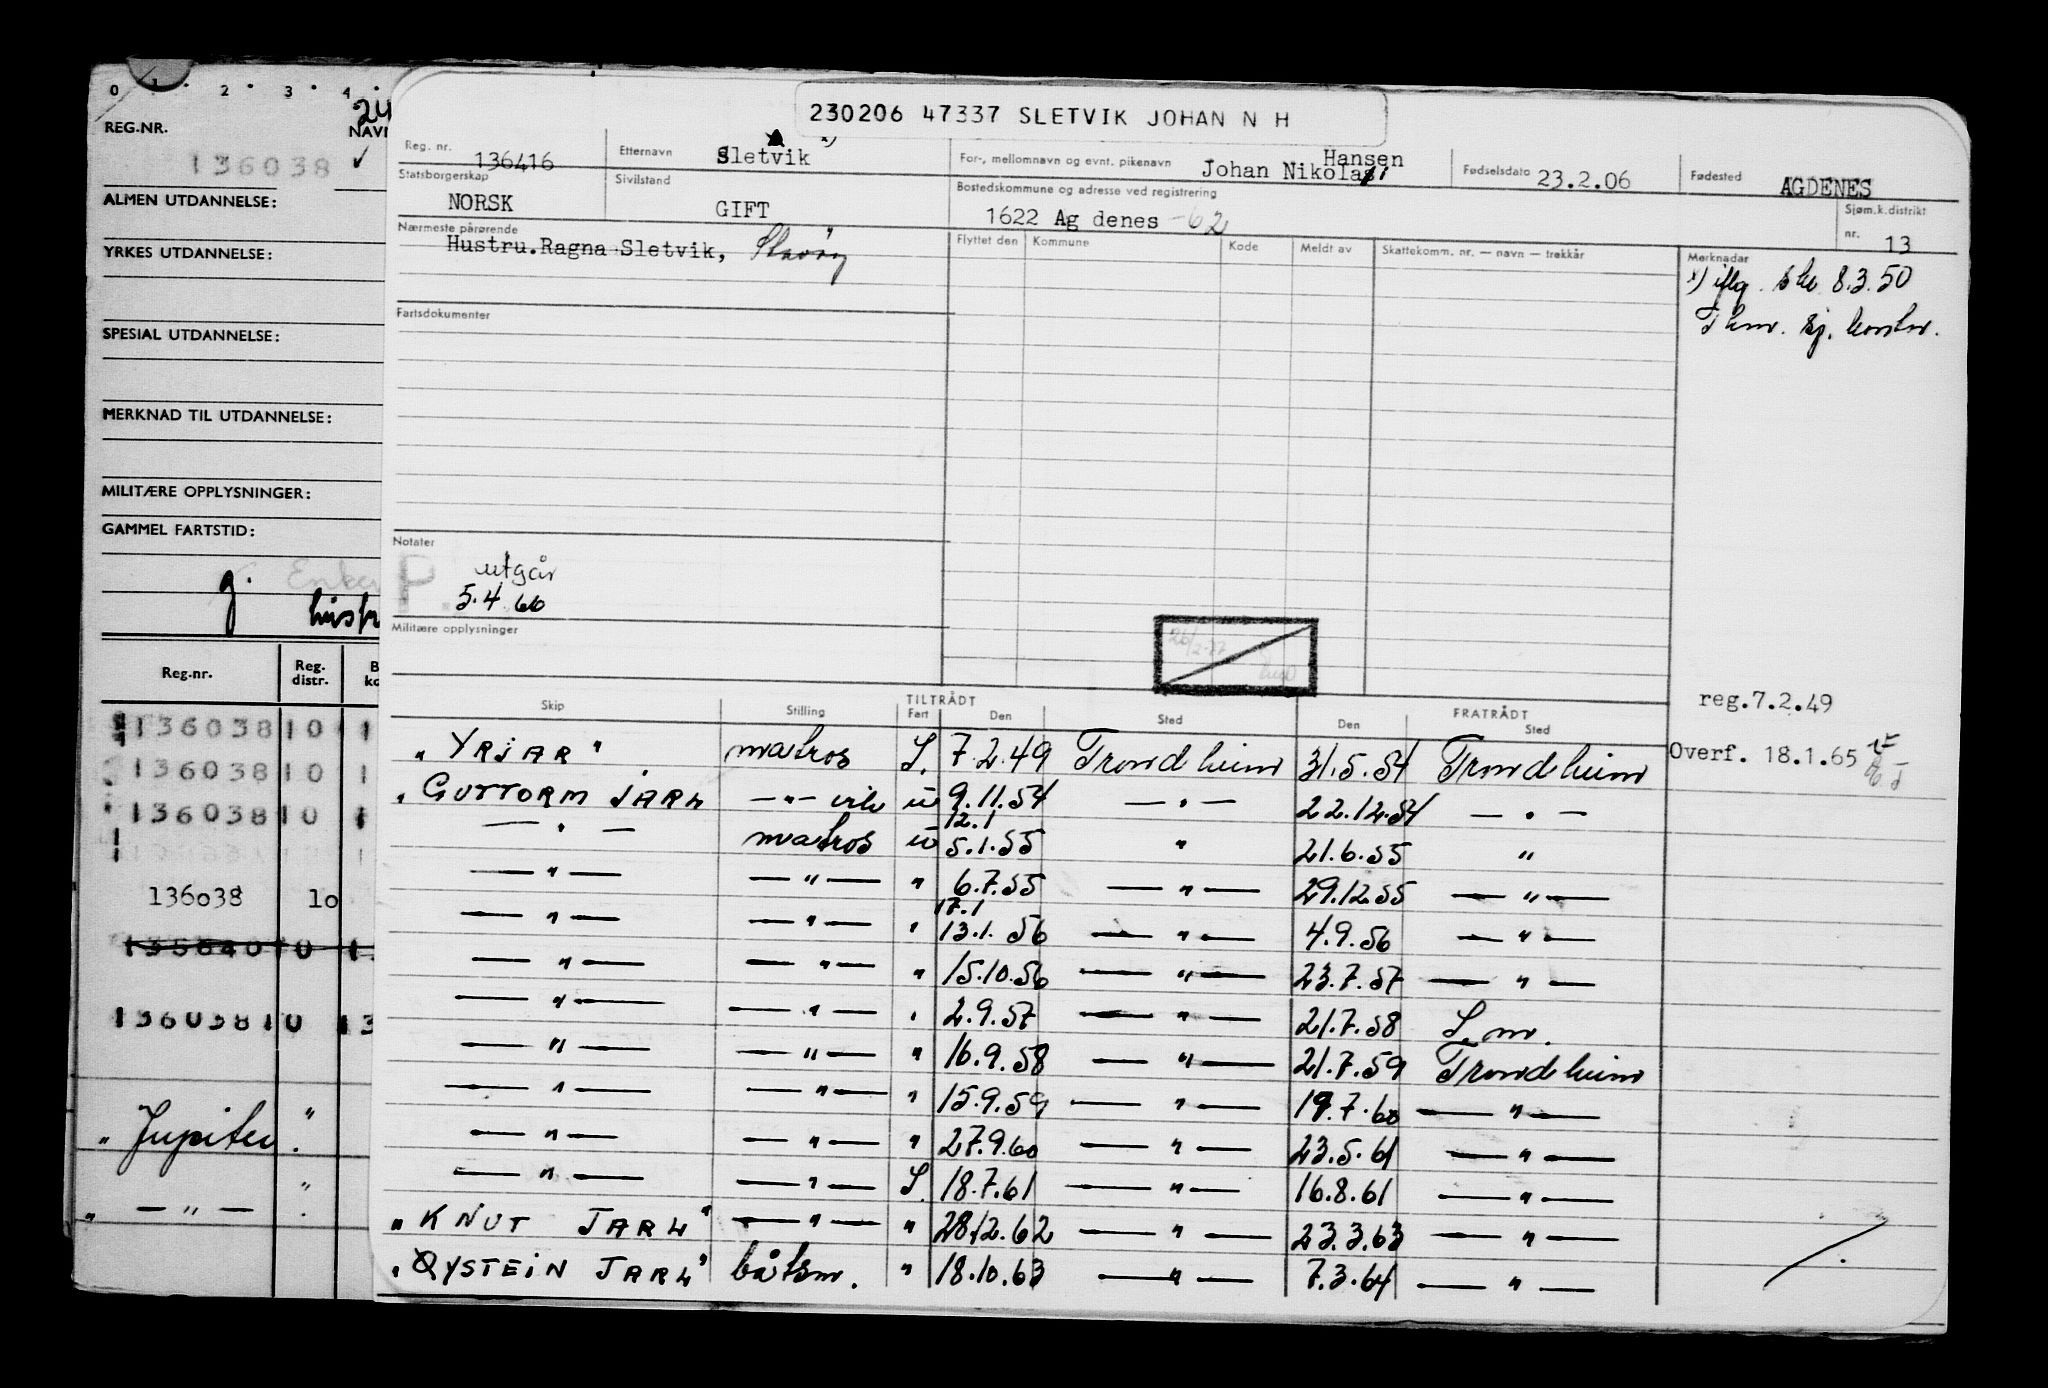 0 1 2 3 4
24
REG.NR.
NAVN
136038 ✓
ALMEN UTDANNELSE:
YRKES UTDANNELSE:
SPESIAL UTDANNELSE:
MERKNAD TIL UTDANNELSE:
MILITÆRE OPPLYSNINGER:
GAMMEL FARTSTID:
g.
Reg.nr. Reg. distr.
136038 10 1
136038 10 1
136038 10 1
136o38 1o
136038 10 13
" Jupiter "
" — " — "
230206 47337 SLETVIK JOHAN N H
Reg. nr. 136416 Etternavn Sletvik x) For-, mellomnavn og evnt. pikenavn Johan Nikolai Hansen Fødselsdato 23.2.06 Fødested AGDENES
Statsborgerskap NORSK Sivilstand GIFT Bostedskommune og adresse ved registrering 1622 Ag denes -62 Sjøm.k.distrikt nr. 13
Nærmeste pårørende Hustru.Ragna Sletvik,
Flyttet den Kommune Kode Meldt av Skattekomm. nr. — navn — trekkår Merknadar
x) iflg. 8.3.50
Fartsdokumenter
Notater
P. utgår
5.4.66
Militære opplysninger
reg.7.2.49
Overf. 18.1.65
TILTRÅDT FRATRÅDT
Skip Stilling Fart Den Sted Den Sted
"YRJAR" matros S. 7.2.49 Trondheim 31.5.54 Trondheim
"GUTTORM JARL — " — vik u 9.11.54 — " — 22.12.54 — " —
12.1
— " — matros u 5.1.55 " 21.6.55 "
— " — — " — " 6.7.55 — " — 29.12.55 — " —
17.1
— " — — " — " 13.1.56 — " — 4.9.56 — " —
— " — — " — " 15.10.56 — " — 23.7.57 — " —
— " — — " — " 2.9.57 — " — 21.7.58 S.m.
— " — — " — " 16.9.58 — " — 21.7.59 Trondheim
— " — — " — " 15.9.59 — " — 19.7.60 — " —
— " — — " — " 27.9.60 — " — 23.5.61 — " —
— " — — " — S. 18.7.61 — " — 16.8.61 — " —
"KNUT JARL" — " — " 28.12.62 — " — 23.3.63 — " —
"ØYSTEIN JARL" båtsm. " 18.10.63 — " — 7.3.64 — " —